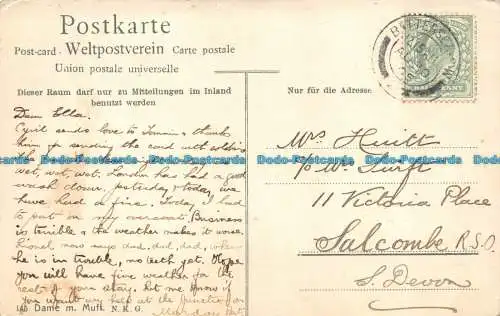 Postkarte
Post-card Weltpostverein Carte postale
Union postale universelle
Dieser Raum darf nur zu Mitteilungen im Inland
benutzt werden
Nur für die Adresse
Dear Ella.
Cyril sends love to & thanks
him for sending the card with soldiers
wet, wet, wet. London has had a good
wash down. yesterday & today we
have had a fire. Today I had
to put on my overcoat. (Business
is terrible & the weather makes it worse.
Lionel now says dad, dad, dad, when
he is in trouble, no teeth yet. Hope
you will have fine weather for the
rest of your stay. Let me know if
you want any help at the Junction on
Mrs Huitt
c/o Mr Turft
11 Victoria Place
Salcombe R.S.O.
S. Devon
Dodo-Postcards.com
146 Dame m. Muff. N. K. G.